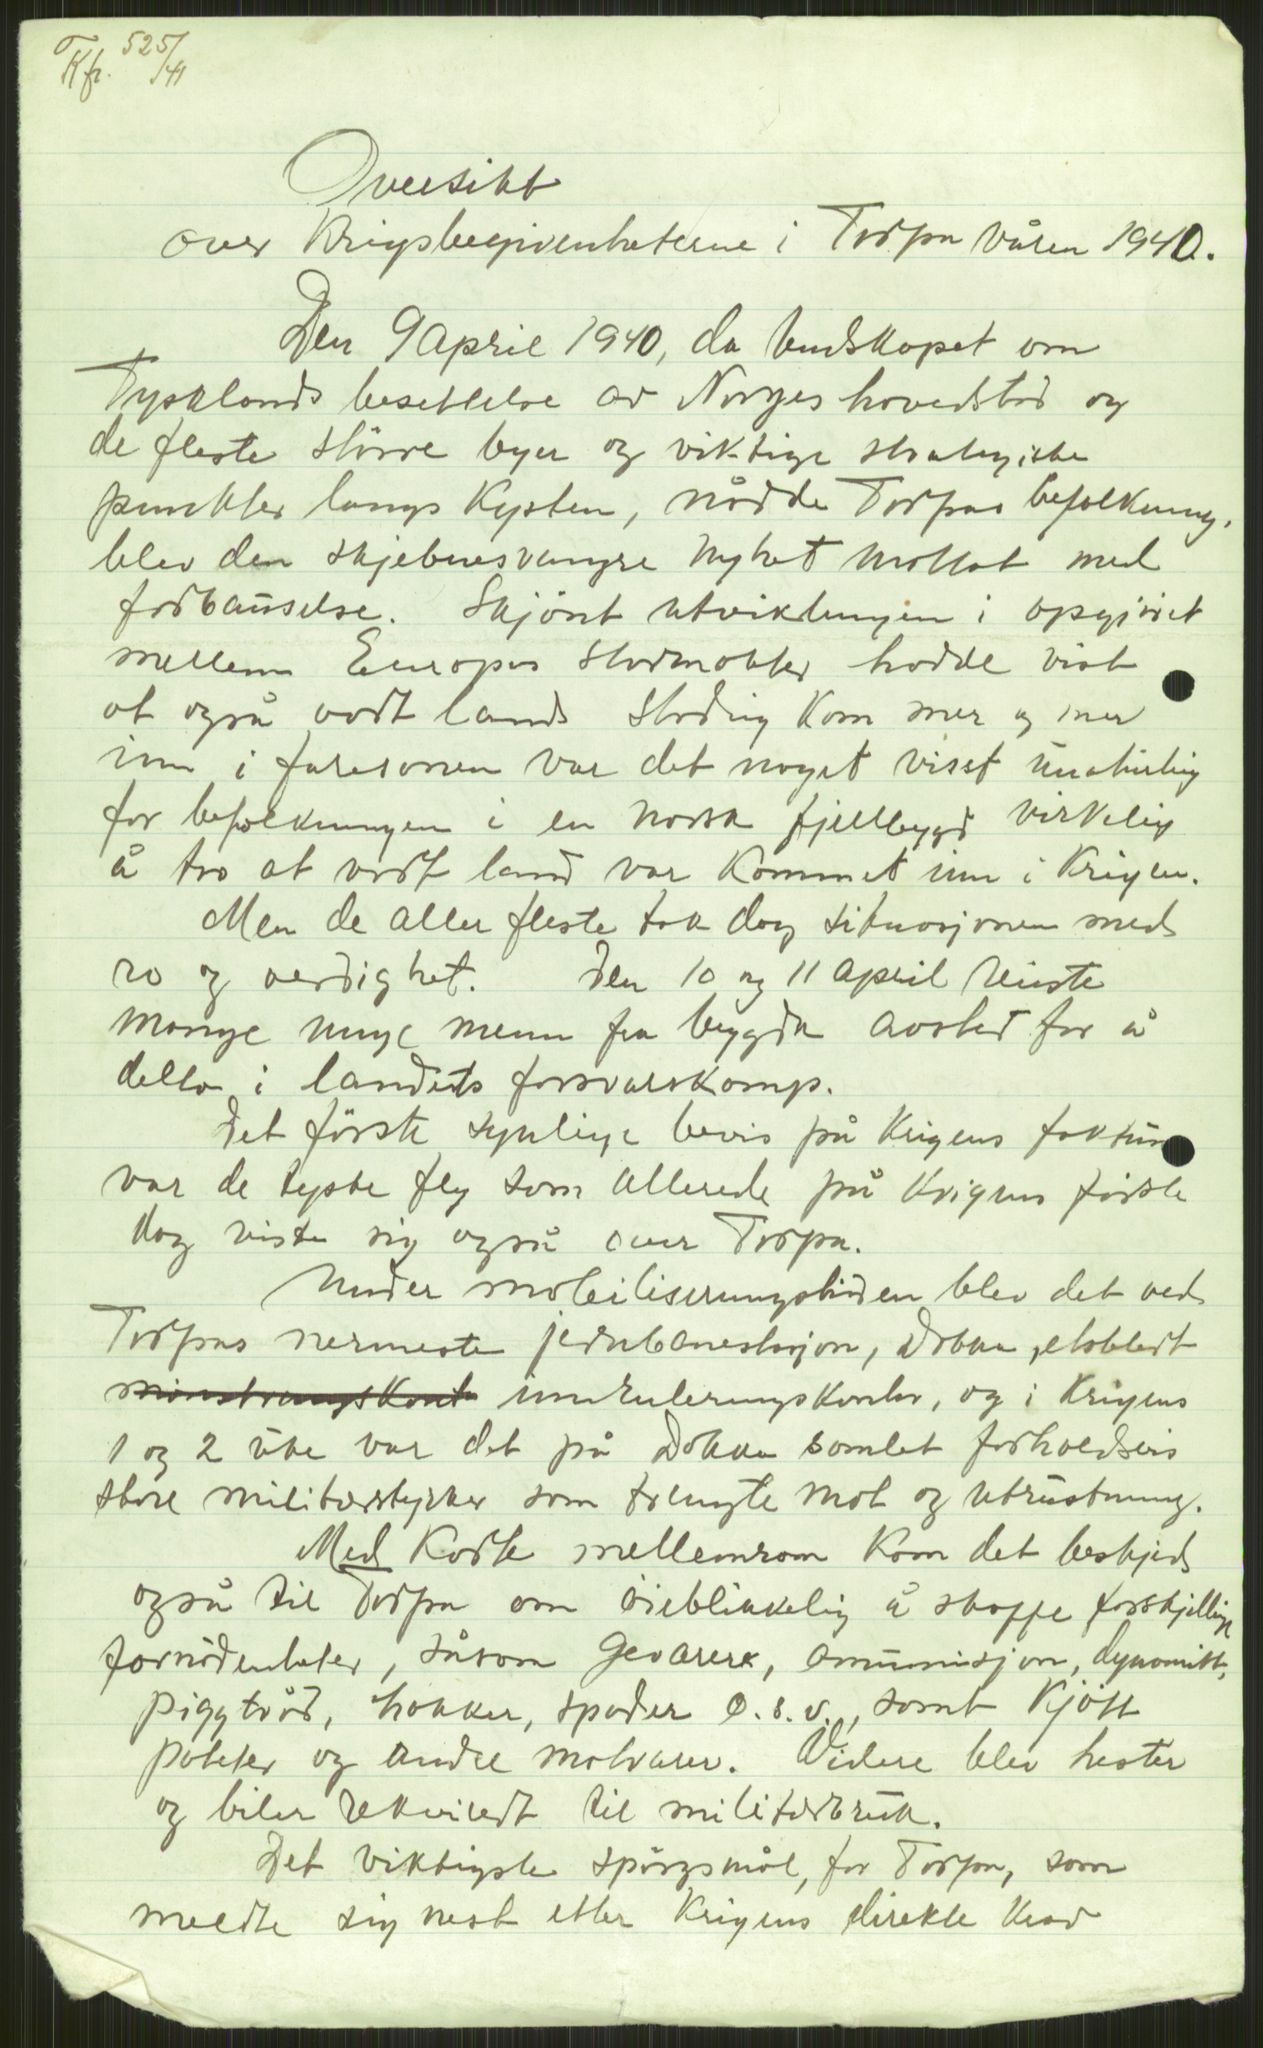 Kfr. 525/41
Oversikt
over Krigsbegivenheterne i Torpa våren 1940.
Den 9 april 1940, da budskapet om
Tysklands besettelse av Norges hovedstad og
de fleste större byer og viktige strategiske
punkter langs Kysten, nådde Torpas befolkning,
blev den skjebnesvangre nyhet mottat med
forbauselse. Skjönt utviklingen i opgjöret
mellem Europas stormakter hadde vist
at også vort lands stilling kom mer og mer
inn i faresonen var det noget visst unaturlig
for befolkningen i en norsk fjellbygd virkelig
å tro at vort land var kommet inn i Krigen.
Men de aller fleste tok dog situasjonen med
ro og verdighet. Den 10 og 11 april reiste
mange unge menn fra bygda avsted for å
delta i landets forsvarskamp.
Det förste synlige bevis på Krigens faktum
var de tyske fly som allerede på Krigens förste
dag viste sig også over Torpa.
Under mobiliseringstiden blev det ved
Torpas nermeste jernbanestasjon, Dokka, etablert
mönstringskont innrulleringskontor, og i Krigens
1 og 2 uke var det på Dokka samlet forholdsvis
store militærstyrker som trengte mat og utrustning.
Med Korte mellemrom kom det beskjed
også til Torpa om öieblikkelig å skaffe forskjellige
fornödenheter, såsom geværer, amunisjon, dynamitt,
piggtråd, hakker, spader o.s.v., samt Kjött
poteter og andre matvarer. Videre blev hester
og biler rekvirert til militærbruk.
Det viktigste spörgsmål, for Torpa, som
meldte sig nest etter Krigens direkte krav